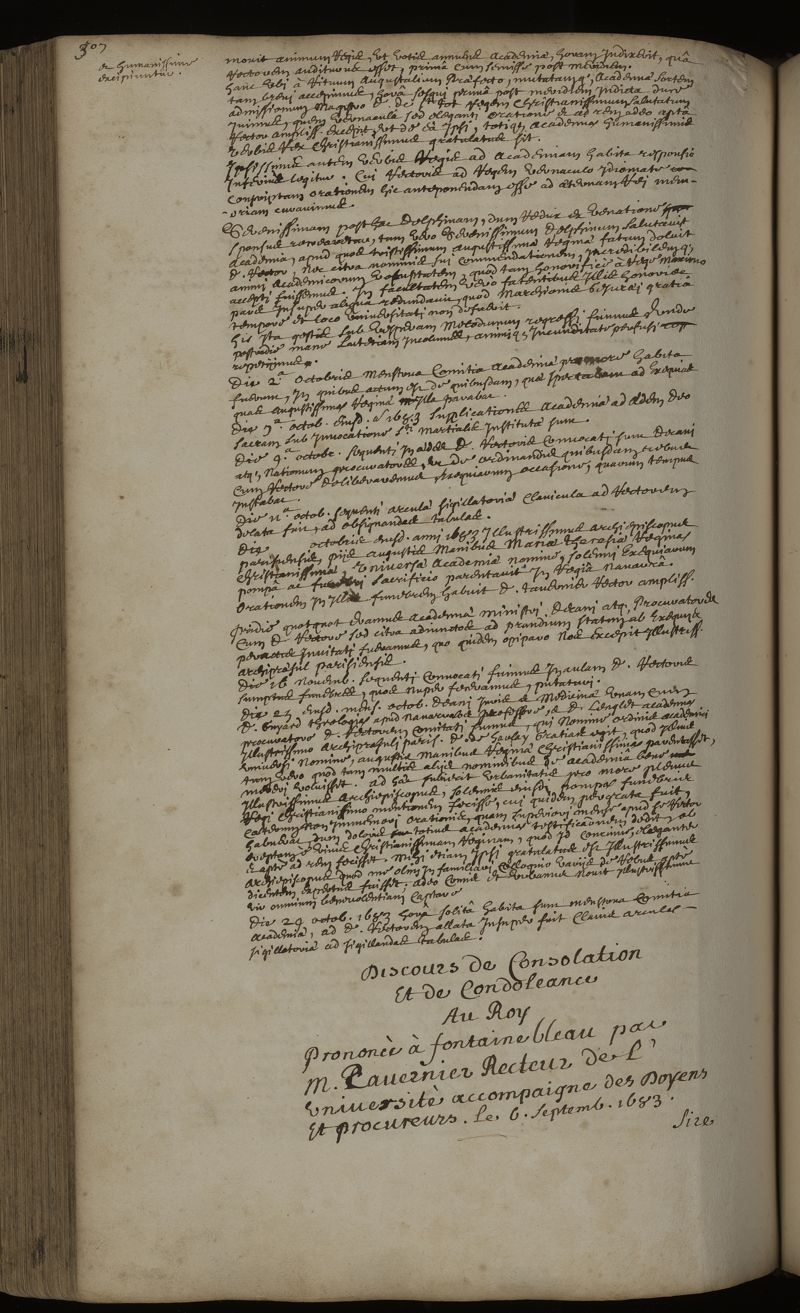 307
et humanissime
excipiuntur.
movit animum Regis, ut votis annuens Academiae, horam indixerit, quâ
Rectorem auditurus esset, primâ cum semisse post meridiem.
hanc ubi à Rituum Augustalium Praefecto, mutatamq, Academiae sortem
tam brevi accepimus, horâ sesqui primâ post meridiem Indictâ duce
admissionum Magistro D. de Regem Christianissimum salutatum
Ivimus, quem vernacula sed eleganti oratione et ad rem adeo aptâ
Rector ampliss. excepit, ut de eâ Ipsi, totiq, Academiae humanissimis
verbis Rex Christianissimus gratulatus sit.
Ipsissimis autem verbis Regis ad Academiam habita responsio
Inferius legitur. Cui Rectoris ad Regem vernaculo Idiomate
Conscriptam orationem hic anteponendam esse ad aeternam Rei mem-
-oriam curavimus.
Serenissimam post hac Delphinam, dum Redux ex venatione
sponsus retardaretur, tum vero Serenissimum Delphinum Salutavit
Academia, apud quos tristissimum augustissimae Reginae fatum doluit
D. Rector, Nec citra nominis sui Commendationem, Incredibilemq,
animi Academicorum voluptatem, quod tam honorificè à Rege Maximo
accepti fuissemus. In facultatem vero fatentibus Illis honoris
pars Insuper aliqua redundavit, quod Marchionis Seguraei gratia
tempore et loco Universitati non defuerit.
his Ita gestis sub vesperam Melodunum regressi fuimus, unde
postridie mane Lutetiam Incolumes, animiq, Iucunditate perfusi
repetiimus.
Die 2.a Octobris Menstrua Comitia Academiae pro more habita
fuerunt, In quibus actum est de quibusdam, quae spectabant ad Exequias
quas Augustissimae Reginae Illa parabat.
Die 7.a octob. Eiusd. a 1683 supplicationes Academiae ad Aedem Deo
sacram sub Invocatione Sti Martialis Instituta sunt.
Die 9.a octobr. sequenti In aedes D. Rectoris Convocati sunt Decani
atq, Nationum procuratores, ut de ordinandis quibusdam rebus
cum Rectore deliberaremus, Exequiarum occasione, quarum tempus
Instabat.
Die 11.a octob. sequenti arculae sigillatoriae Clavicula ad Rectorem
delata fuit, ad obsignandas tabulas.
Die octobris Eiusd. anni 1683 Illustrissimus Archiepiscopus
parisiensis, pijs augustis Manibus Mariae Theresiae Reginae
Christianissimae, Universae Academiae nomine, solemni Exequiarum
pompâ ac funebri sacrificio parentavit In Regiâ Navarrâ.
orationem In Illis funebrem habuit D. Tavernier Rector ampliss.
Pridie quotquot eramus Academiae ministri, Decani atq, Procuratores
cum D. Rectore sed citra adiunctos ad prandium statim ab Exequijs
peractis Invitati fueramus, quo quidem opiparo Nos excepit Illustriss.
Archipraesul parisiensis.
Die 16 Novemb. sequenti Convocati fuimus In aulam D. Rectoris
sumptus funebres, quos nuper feceramus, putaturi.
Die 25 Eiusd. mens. octob. Decani Iuris et Medicinae unam cum
D. Guyard theologiae apud Navarraeos professore et D. Lenglet academiae
procuratore D. Rectorem Comitati fuimus, qui Nomine ordinis academici
Illustrissimo Archipraesuli paris. D. de harlay gratias egit, quod Illius
Universi Nomine, augustis Manibus Reginae Christianissimae parentasset,
tum vero quod tam multis alijs nominibus de Academia bene
mereri voluisset. ad haec subiecit urbanitatis pro more plenus
Illustrissimus Archiepiscopus, solemnis eiusd. pompae funebris
Regi Christianissimo mentionem fecisse, cui quidem pergrata fuit,
Caeterum Non Immemor orationis, quam superiori mense apud se Rector
habuerat, dum doloris totius Academiae testificationem dedit, ab
ereptam è vivis Christianissimam Reginam, quod Id concinne, eleganter
et apte ad rem fecisset. Mihi etiam Ipsi gratulatus est Illustrissimus
Archiepiscopus quod me olim In familiari Colloquio varijs de Rebus apte
dicentem expertus fuisset, adeo Comis et Urbanus Novit Illustrissimus
Vir omnium benevolentiam captare.
Die 29 octob. 1683 horâ solitâ habita sunt menstrua Comitia
Academiae, ad D. Rectorem allata Insuper fuit Clavis arculae
sigillatoriae ad sigillandas tabulas.
Discours de Consolation
Et de Condoleance
Au Roy
Prononcé à fontainebleau par
M. Tavernier Recteur de L'
Université accompaigne des Doyens
Et procureurs. le 6. Septemb. 1683.
Sire